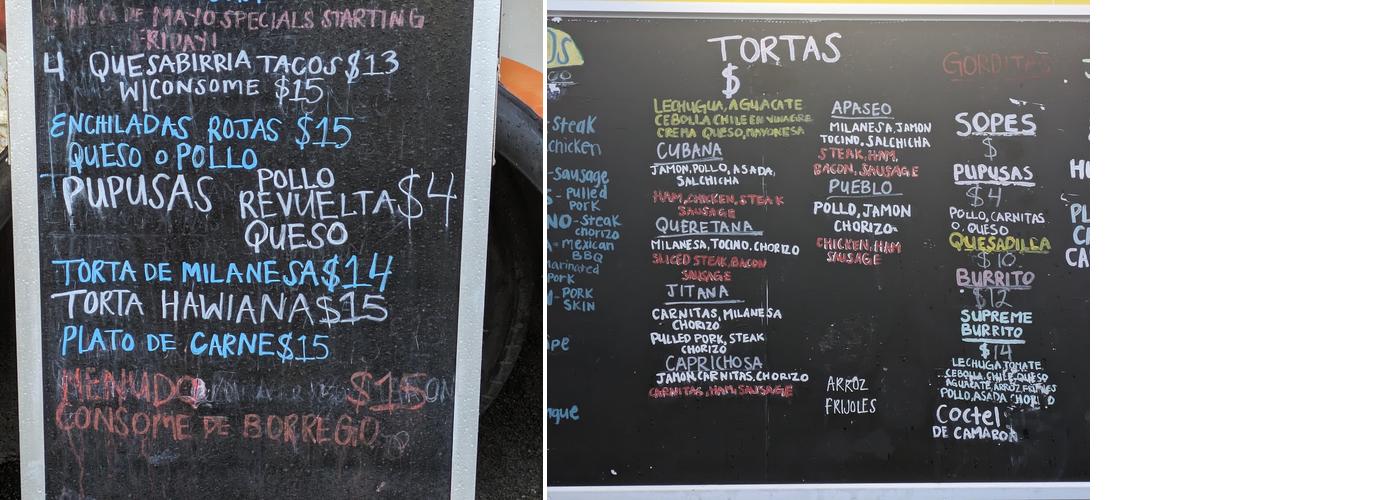 DE MAYO SPECIALS STARTING
FRIDAY!
4 QUESABIRRIA TACOS $13
W/CONSOME $15
ENCHILADAS ROJAS $15
QUESO O POLLO
PUPUSAS POLLO
REVUELTA $4
QUESO
TORTA DE MILANESA $14
TORTA HAWIANA $15
PLATO DE CARNE $15
MENUDO $15
CONSOME DE BORREGO
OS
-Steak
chicken
-Sausage
- Pulled
Pork
NO-Steak
chorizo
- mexican
BBQ
marinated
Pork
-PORK
SKIN
TORTAS
$
LECHUGUA, AGUACATE
CEBOLLA CHILE EN VINAGRE
CREMA QUESO, MAYONESA
CUBANA
JAMON, POLLO, ASADA,
SALCHICHA
HAM, CHICKEN, STEAK
SAUSAGE
QUERETANA
MILANESA, TOCINO, CHORIZO
SLICED STEAK, BACON
SAUSAGE
JITANA
CARNITAS, MILANESA
CHORIZO
PULLED PORK, STEAK
CHORIZO
CAPRICHOSA
JAMON, CARNITAS, CHORIZO
CARNITAS, HAM, SAUSAGE
APASEO
MILANESA, JAMON
TOCINO, SALCHICHA
STEAK, HAM,
BACON, SAUSAGE
PUEBLO
POLLO, JAMON
CHORIZO
CHICKEN, HAM
SAUSAGE
ARROZ
FRIJOLES
GORDITAS
SOPES
$
PUPUSAS
$4
POLLO, CARNITAS
O, QUESO
QUESADILLA
$10
BURRITO
$12
SUPREME
BURRITO
$14
LECHUGA, TOMATE
CEBOLLA, CHILE, QUESO
AGUACATE ARROZ FRIJOLES
POLLO, ASADA
Coctel
DE CAMARON